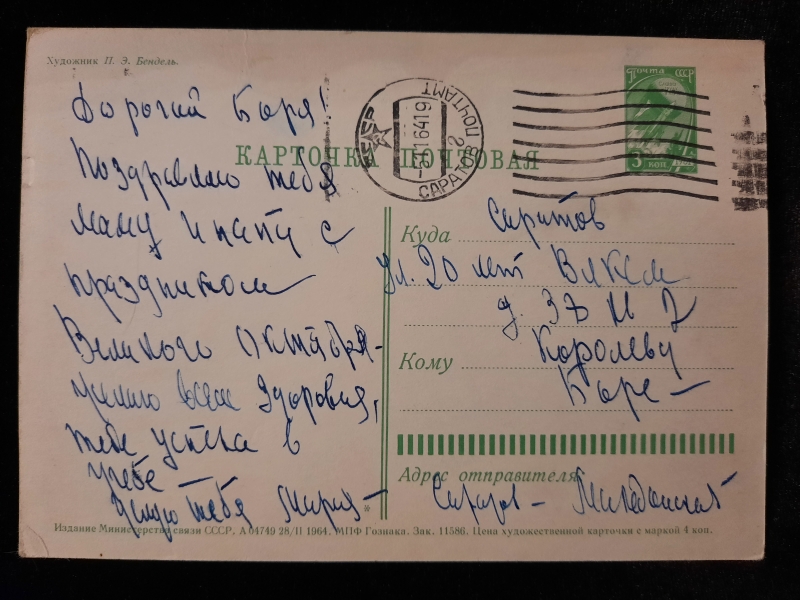 Художник П. Э. Бендель.
Почта СССР
3 коп.
СССР
-5 11 64 19
САРАТОВ 2 ПОЧТАМТ
КАРТОЧКА ПОЧТОВАЯ
Дорогий Боря!
Поздравляю тебя
маму и папу с
праздником
Великого Октября-
желаю всем здоровья,
тебе успеха в
учебе —
Целую тебя Мария-
Куда Саратов
ул. 20 лет ВЛКСМ
д. 37
Кому Королеву
Боре —
Адрес отправителя
Саратов-
Издание Министерства связи СССР. А 04749 28/II 1964. МПФ Гознака. Зак. 11586. Цена художественной карточки с маркой 4 коп.